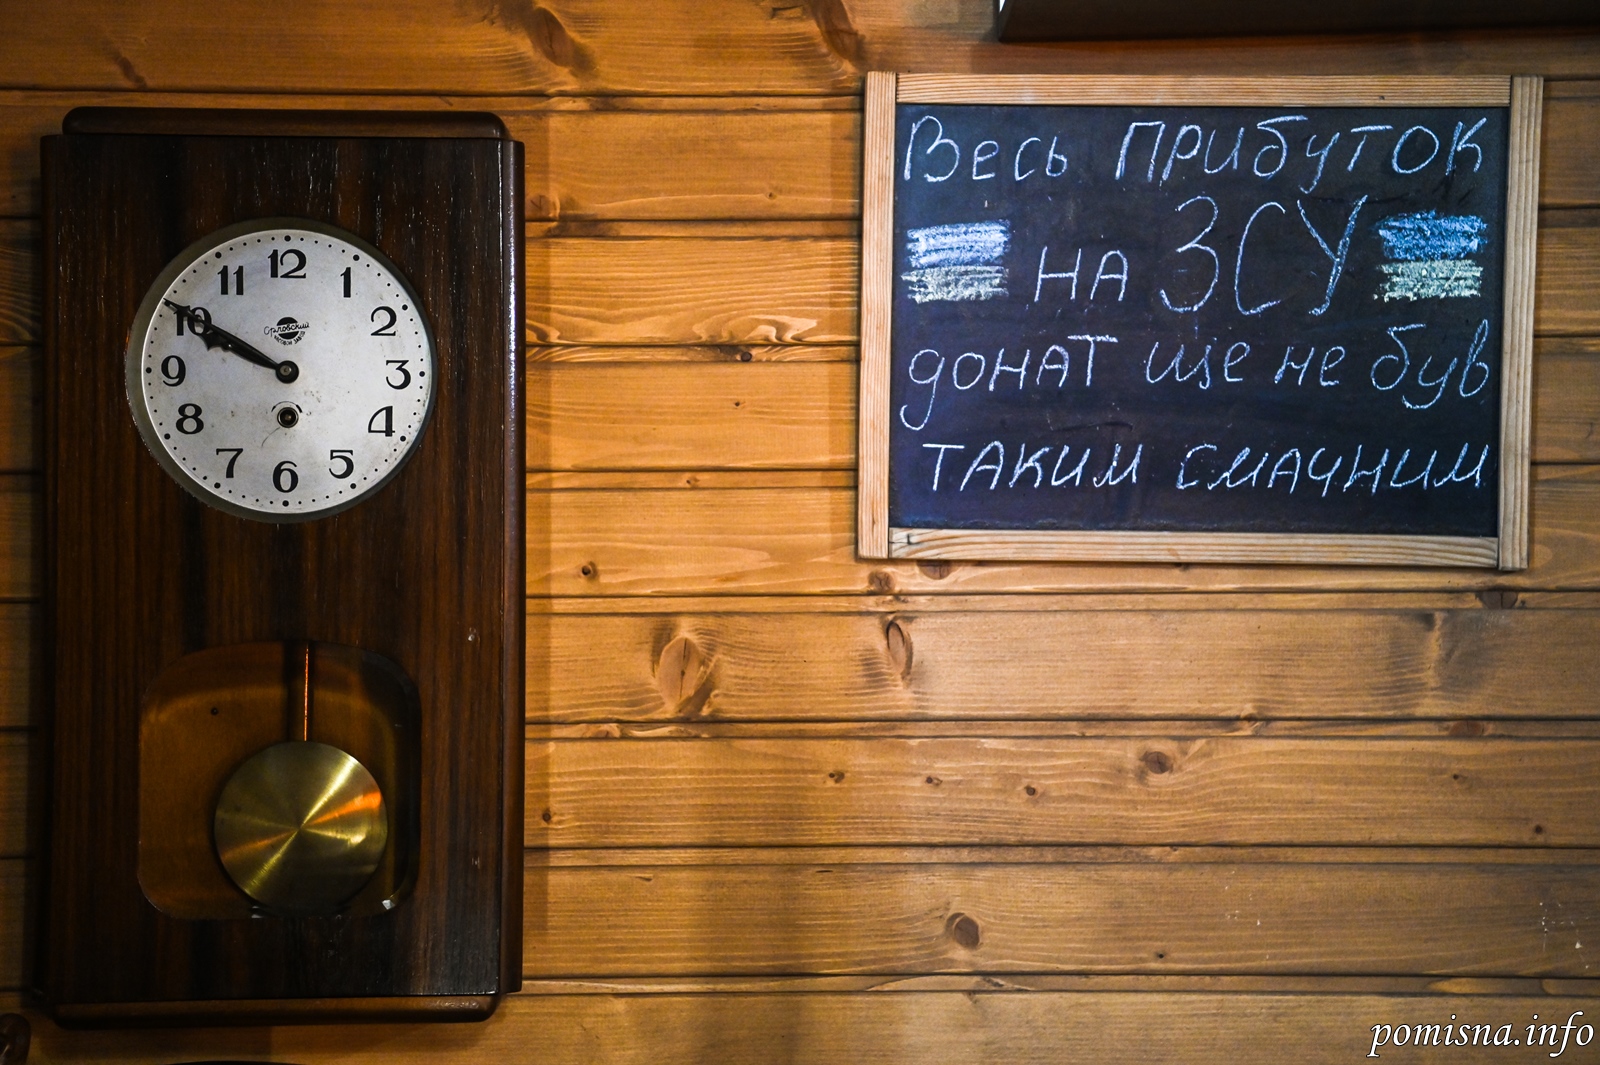 12
11
1
10
2
9
3
8
4
7
5
6
Орловский
часовой завод
Весь ПРИБУТОК
НА ЗСУ
ДОНАТ ще не був
ТАКИМ СМАЧНИМ
pomisna.info